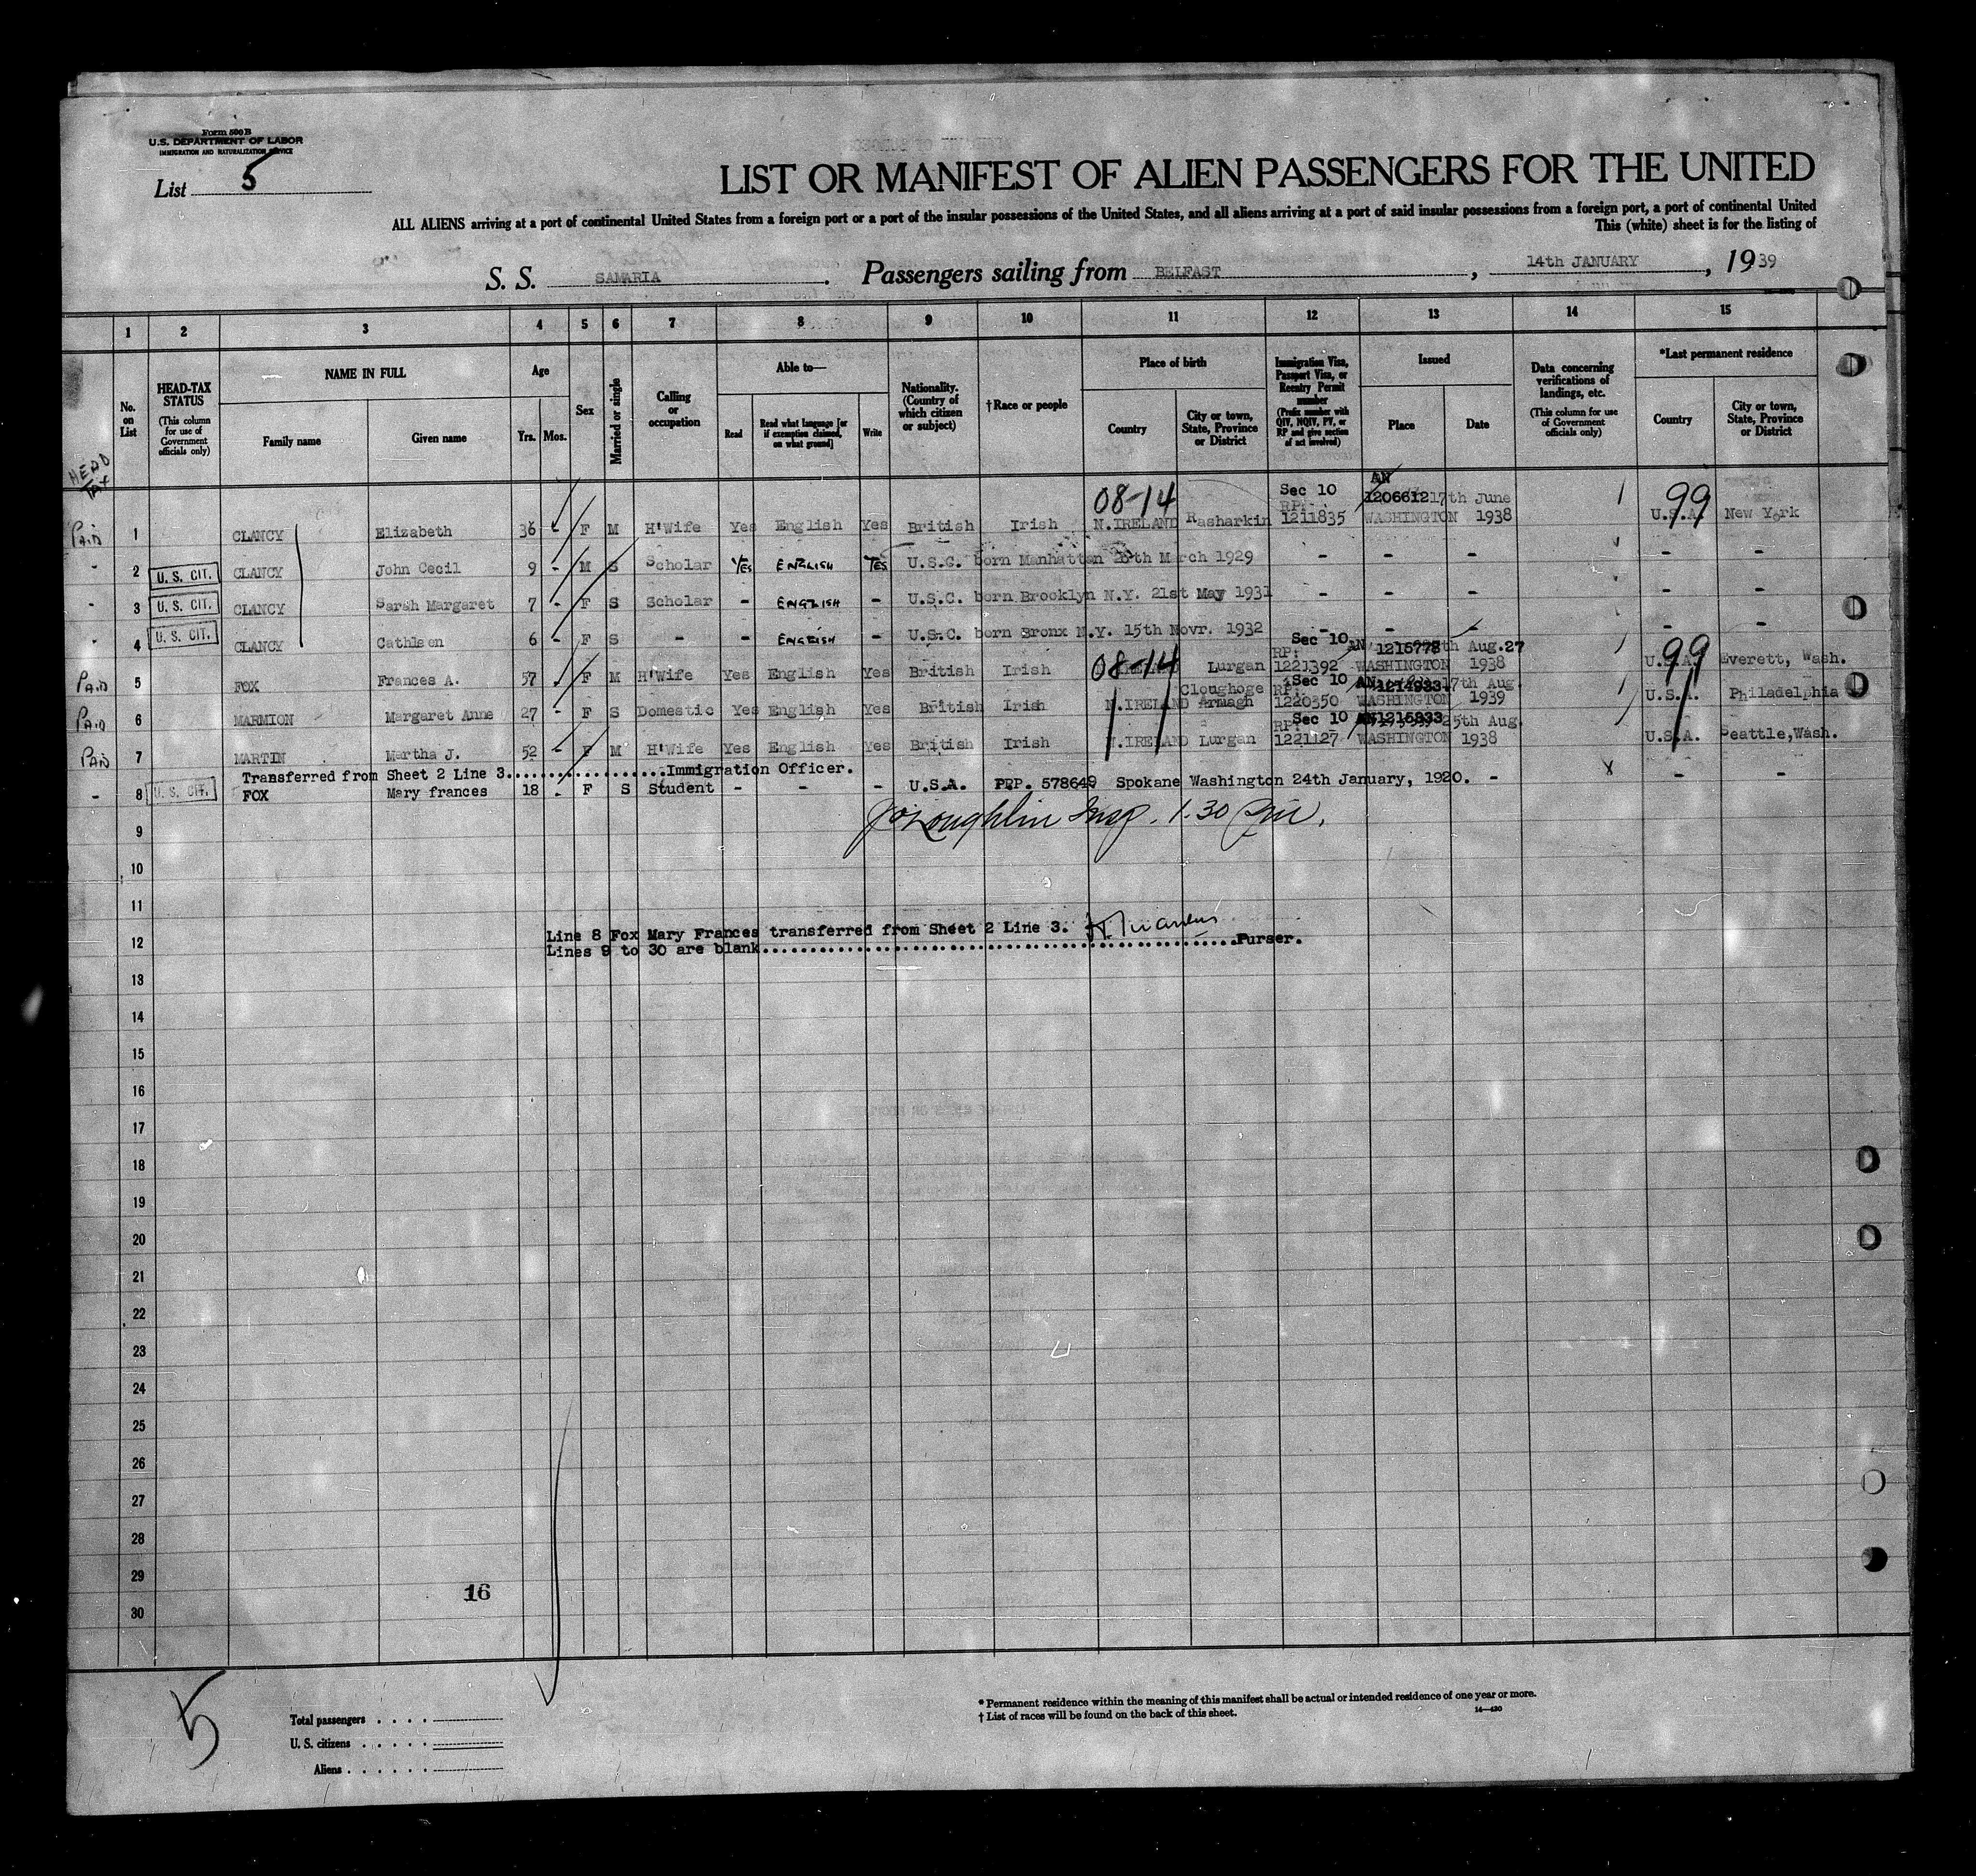 Form 500 B
U.S. DEPARTMENT OF LABOR
IMMIGRATION AND NATURALIZATION SERVICE
List 5
LIST OR MANIFEST OF ALIEN PASSENGERS FOR THE UNITED
ALL ALIENS arriving at a port of continental United States from a foreign port or a port of the insular possessions of the United States, and all aliens arriving at a port of said insular possessions from a foreign port, a port of continental United
This (white) sheet is for the listing of
S. S. SAMARIA. Passengers sailing from BELFAST, 14th JANUARY, 1939
1 2 3 4 5 6 7 8 9 10 11 12 13 14 15
No. on List
HEAD-TAX STATUS (This column for use of Government officials only)
NAME IN FULL Family name Given name
Age Yrs. Mos.
Sex
Married or single
Calling or occupation
Able to— Read Read what language [or if exemption claimed, on what ground] Write
Nationality. (Country of which citizen or subject)
†Race or people
Place of birth Country City or town, State, Province or District
Immigration Visa, Passport Visa, or Reentry Permit number (Prefix number with QIV, NQIV, PV, or RP and give section of act involved)
Issued Place Date
Data concerning verifications of landings, etc. (This column for use of Government officials only)
*Last permanent residence Country City or town, State, Province or District
HEAD TAX
08-14 Sec 10 AN 1206612 17th June 99
PAID 1 CLANCY Elizabeth 36 - F M H'Wife Yes English Yes British Irish N.IRELAND Rasharkin RP: 1211835 WASHINGTON 1938 U.S.A. New York
- 2 U. S. CIT. CLANCY John Cecil 9 - M S Scholar YES ENGLISH YES U.S.C. born Manhattan March 1929 - - - - -
- 3 U. S. CIT. CLANCY Sarah Margaret 7 - F S Scholar - ENGLISH - U.S.C. born Brooklyn N.Y. 21st May 1931 - - - - -
- 4 U. S. CIT. CLANCY Cathleen 6 - F S - - ENGLISH - U.S.C. born Bronx N.Y. 15th Novr. 1932 - - - - -
Sec 10 AN 1215778 Aug. 27 99
PAID 5 FOX Frances A. 57 F M H'Wife Yes English Yes British Irish 08-14 Lurgan RP: 1221392 WASHINGTON 1938 U.S.A. Everett, Wash.
Cloughoge Sec 10 AN 1214933 17th Aug.
PAID 6 MARMION Margaret Anne 27 - F S Domestic Yes English Yes British Irish N.IRELAND Armagh RP: 1220350 WASHINGTON 1939 U.S.A. Philadelphia
Sec 10 AN 1215833 25th Aug.
PAID 7 MARTIN Martha J. 52 - F M H'Wife Yes English Yes British Irish N.IRELAND Lurgan RP: 1221127 WASHINGTON 1938 U.S.A. Seattle,Wash.
Transferred from Sheet 2 Line 3..................Immigration Officer.
- 8 U. S. CIT. FOX Mary frances 18 - F S Student - - - U.S.A. PRP. 578649 Spokane Washington 24th January, 1920. - X - -
9
J O'Loughlin Insp. 1.30 pm.
10
11
Line 8 Fox Mary Frances transferred from Sheet 2 Line 3.
12
Lines 9 to 30 are blank..................Purser.
13
14
15
16
17
18
19
20
21
22
23
24
25
26
27
28
29
16
30
5
Total passengers . . . .
U. S. citizens . . . . .
Aliens . . . . . .
* Permanent residence within the meaning of this manifest shall be actual or intended residence of one year or more.
† List of races will be found on the back of this sheet.
14—430